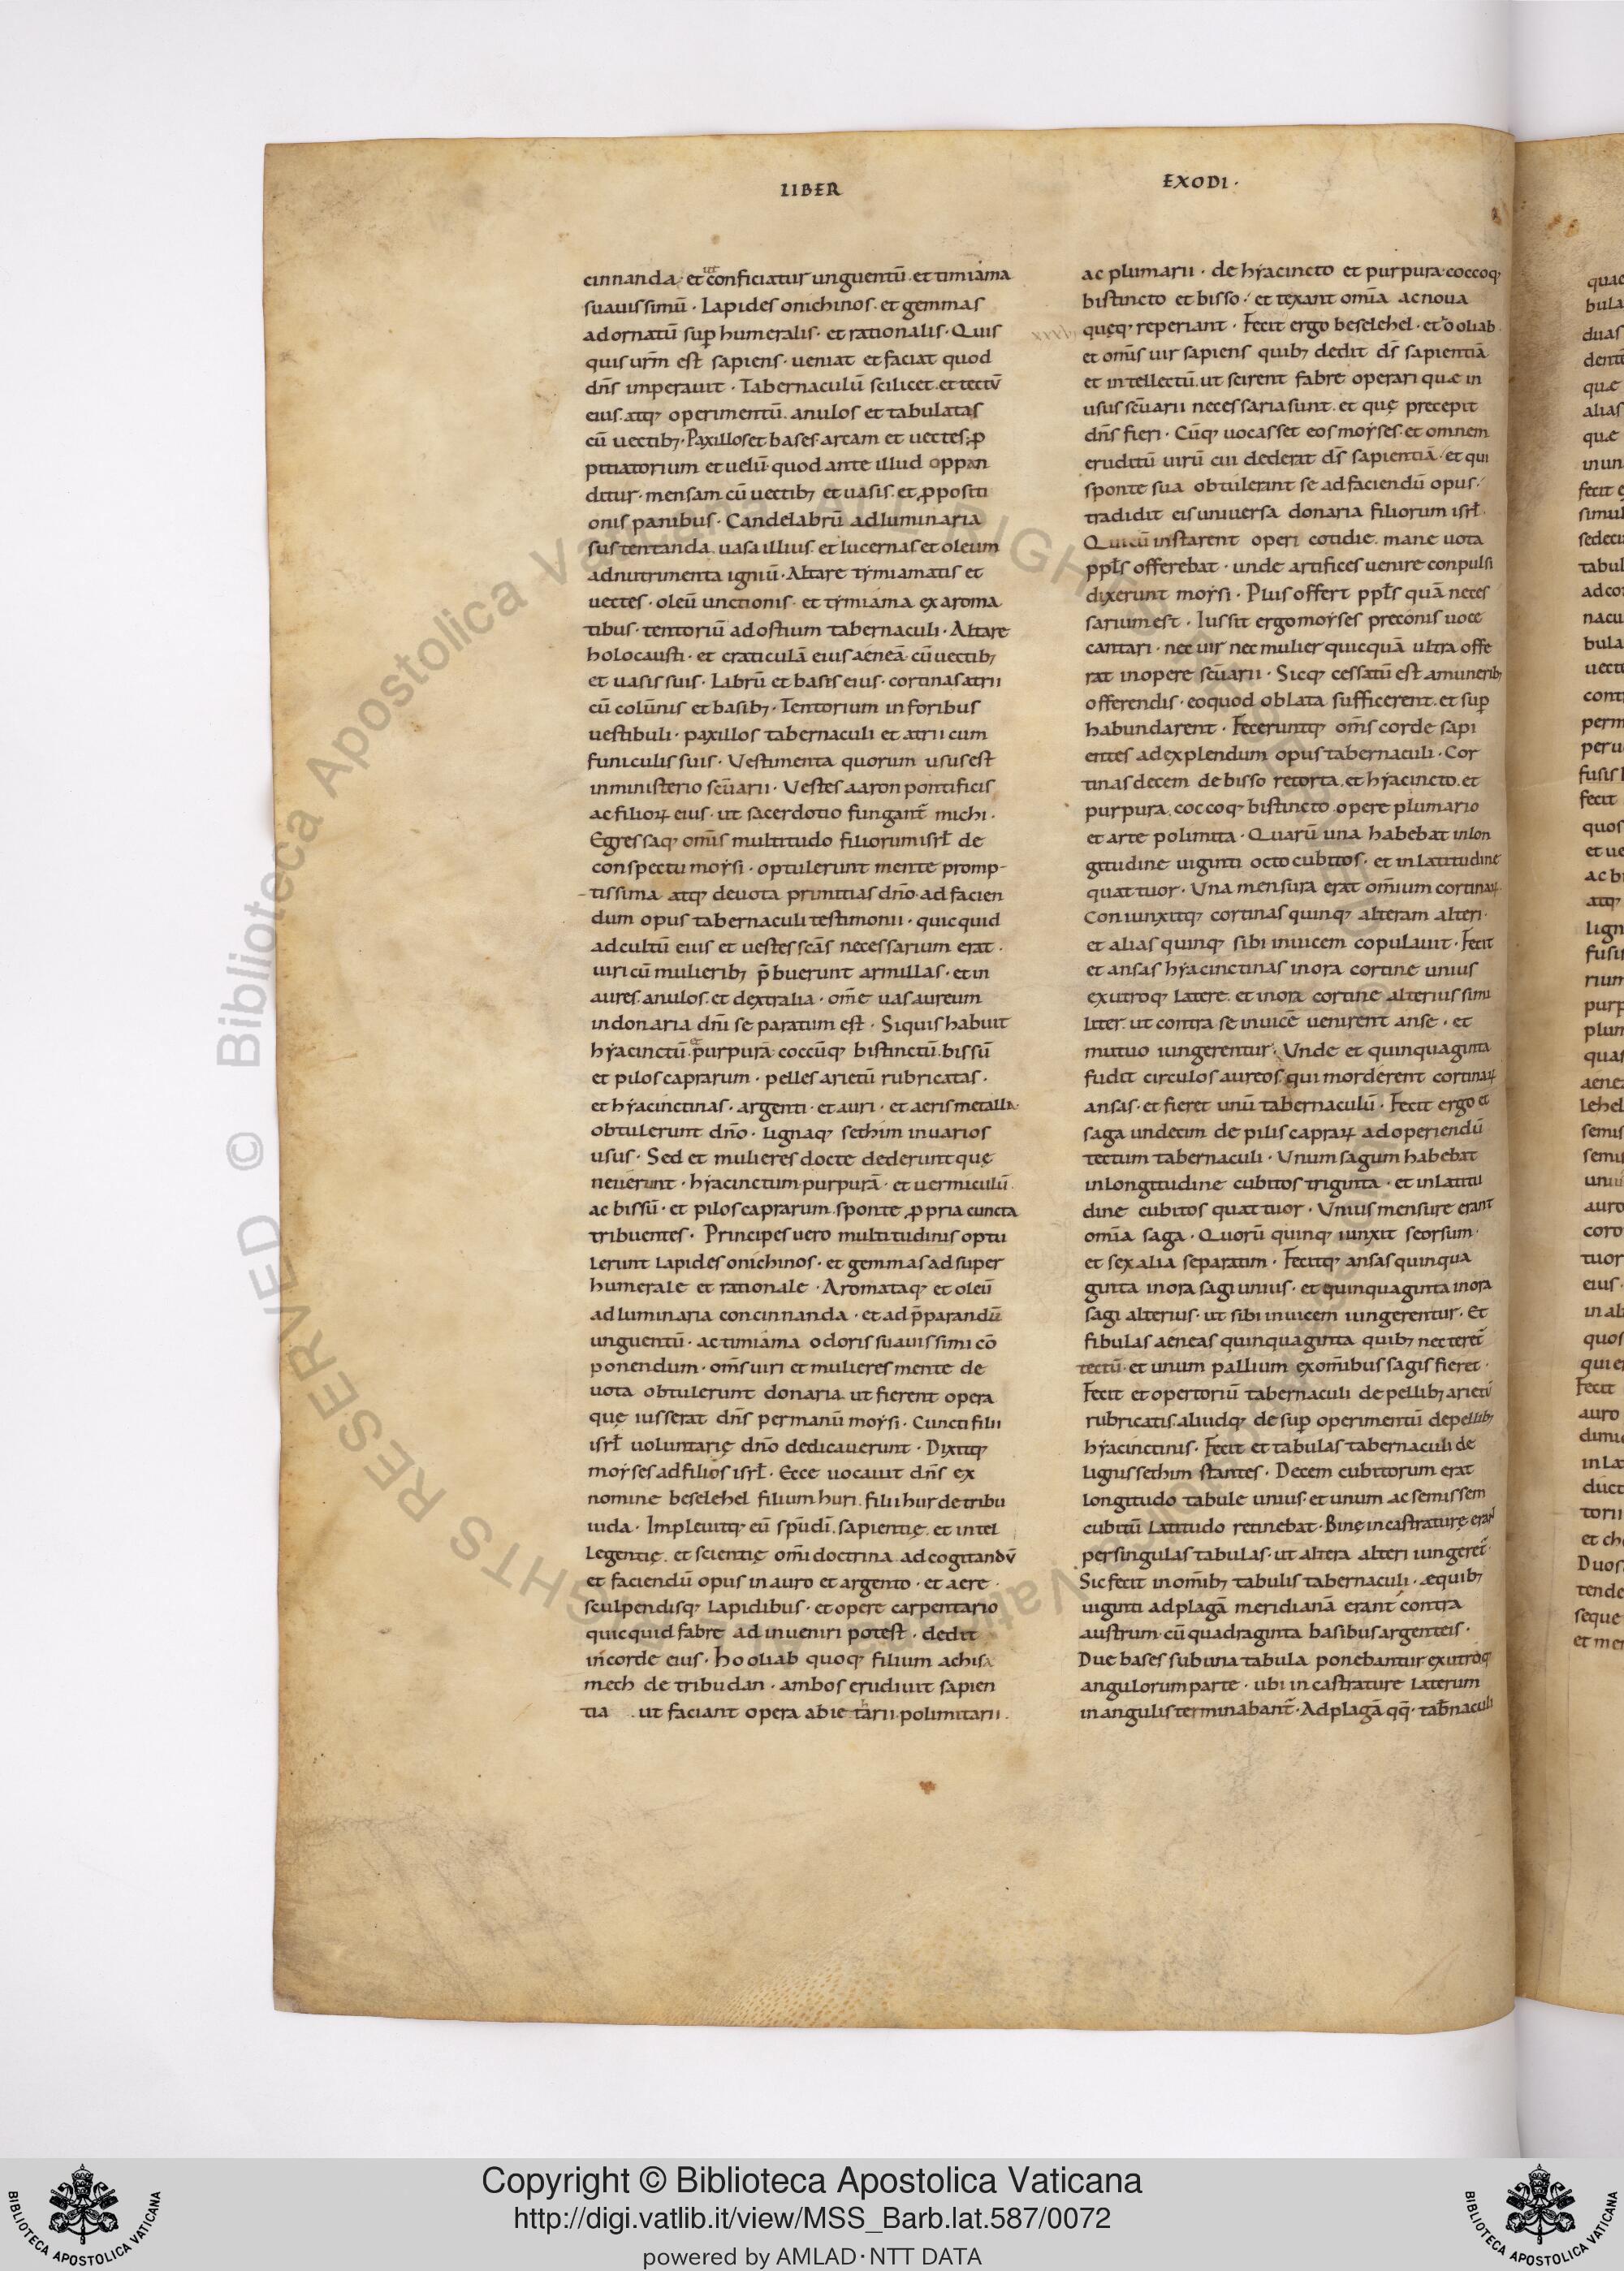 LIBER
cinnanda · et ut c̄onficiatur unguentū · et timiama
suauissimū · Lapides onichinos · et gemmas
ad ornatū sup̄ humeralis · et rationalis · Quis
quis ur̄m est sapiens · ueniat et faciat quod
dn̄s imperauit · Tabernaculū scilicet · et tectū
eius · atq; operimentū · anulos et tabulatas
cū uectib; · Paxillos et bases · arcam et uectes · ꝓ
pitiatorium et uelū · quod ante illud oppan
ditur · mensam cū uectib; et uasis · et ꝓpositi
onis panibus · Candelabrū ad luminaria
sustentanda · uasa illius · et lucernas et oleum
ad nutrimenta igniū · Altare tymiamatis et
uectes · oleū unctionis · et tymiama ex aroma
tibus · tentoriū ad ostium tabernaculi · Altare
holocausti · et craticulā eius aeneā · cū uectib;
et uasis suis · Labrū et basis eius · cortinas atrii
cū colūnis et basib; · Tentorium in foribus
uestibuli · paxillos tabernaculi et atrii cum
funiculis suis · Vestimenta quorum usus est
in ministerio sc̄uarii · Vestes aaron pontificis
ac filioꝝ eius · ut sacerdotio fungant̄ michi ·
Egressaq; om̄is multitudo filiorum isrł de
conspectu moysi · optulerunt mente promp-
tissima atq; deuota primitias dn̄o · ad facien
dum opus tabernaculi testimonii · quicquid
ad cultū eius et uestes sc̄as necessarium erat ·
uiri cū mulierib; p̄buerunt armillas · et in
aures · anulos · et dextralia · om̄e uas aureum
in donaria dn̄i separatum est · Siquis habuit
hyacinctū · et purpurā · coccūq; bistinctū · bissū
et pilos caprarum · pelles arietū rubricatas ·
et hyacinctinas · argenti · et auri · et aeris metalla ·
obtulerunt dn̄o · lignaq; sethim in uarios
usus · Sed et mulieres docte dederunt quę
neuerunt · hyacinctum · purpurā · et uermiculū
ac bissū · et pilos caprarum · sponte ꝓpria cuncta
tribuentes · Principes uero multitudinis optu
lerunt lapides onichinos · et gemmas ad super
humerale et rationale · Aromataq; et oleū
ad luminaria concinnanda · et ad p̄parandū
unguentū · ac timiama odoris suauissimi cō
ponendum · om̄s uiri et mulieres mente de
uota obtulerunt donaria · ut fierent opera
quę iusserat dn̄s per manū moysi · Cuncti filii
isrł uoluntarię dn̄o dedicauerunt · Dixitq;
moyses ad filios isrł · Ecce uocauit dn̄s ex
nomine beselehel filium huri · filii hur de tribu
iuda · Impleuitq; eū sp̄u dī · sapientię · et intel
legentię · et scientię om̄i doctrina · ad cogitandū
et faciendū opus in auro et argento · et aere ·
sculpendisq; lapidibus · et opere carpentario
quicquid fabre ad inueniri potest · dedit
in corde eius · hooliab quoq; filium achisa
mech de tribu dan · ambos erudiuit sapien
tia · ut faciant opera abietarii · polimitarii ·
EXODI ·
ac plumarii · de hyacincto et purpura · coccoq;
bistincto et bisso · et texant om̄ia ac noua
queq; reperiant · Fecit ergo beselehel · et ooliab
et om̄is uir sapiens quib; dedit dś sapientiā
et intellectū · ut scirent fabre operari quæ in
usus sc̄uarii necessaria sunt · et quę precepit
dn̄s fieri · Cūq; uocasset eos moyses · et omnem
eruditū uirū cui dederat dś sapientiā · et qui
sponte sua obtulerint se ad faciendū opus ·
tradidit eis uniuersa donaria filiorum isrł ·
Qui cū instarent operi cotidie · mane uota
ppłs offerebat · unde artifices uenire conpulsi
dixerunt moysi · Plus offert ppłs quā neces
sarium est · Iussit ergo moyses preconis uoce
cantari · nec uir nec mulier quicquā ultra offe
rat in opere sc̄uarii · Sicq; cessatū est a munerib;
offerendis · eo quod oblata sufficerent · et sup̄
habundarent · Feceruntq; om̄s corde sapi
entes ad explendum opus tabernaculi · Cor
tinas decem de bisso retorta · et hyacincto · et
purpura · coccoq; bistincto · opere plumario
et arte polimita · Quarū una habebat in lon
gitudine uiginti octo cubitos · et in latitudine
quattuor · Una mensura erat om̄ium cortinaꝝ ·
Coniunxitq; cortinas quinq; alteram alteri ·
et alias quinq; sibi inuicem copulauit · Fecit
et ansas hyacinctinas in ora cortine unius
ex utroq; latere · et in ora cortine alterius simi
liter · ut contra se inuicē uenirent anse · et
mutuo iungerentur · Unde et quinquaginta
fudit circulos aureos · qui morderent cortinaꝝ
ansas · et fieret unū tabernaculū · Fecit ergo et
saga undecim de pilis capraꝝ ad operiendū
tectum tabernaculi · Unum sagum habebat
in longitudine cubitos triginta · et in latitu
dine cubitos quattuor · Unius mensure erant
om̄ia saga · Quorū quinq; iunxit seorsum ·
et sex alia separatim · Fecitq; ansas quinqua
ginta in ora sagi unius · et quinquaginta in ora
sagi alterius · ut sibi inuicem iungerentur · Et
fibulas aeneas quinquaginta quib; necteret̄
tectū · et unum pallium ex om̄ibus sagis fieret ·
Fecit et opertoriū tabernaculi de pellib; arietū
rubricatis · aliudq; desup̄ operimentū de pellib;
hyacinctinis · Fecit et tabulas tabernaculi de
lignis sethim stantes · Decem cubitorum erat
longitudo tabule unius · et unum ac semissem
cubitū latitudo retinebat · Binę incastraturę erant
per singulas tabulas · ut altera alteri iungeret̄ ·
Sic fecit in om̄ib; tabulis tabernaculi · equib;
uiginti ad plagā meridianā erant contra
austrum · cū quadraginta basibus argenteis ·
Due bases sub una tabula ponebantur ex utraq;
angulorum parte · ubi incastrature laterum
in angulis terminabant̄ · Ad plagā qq̄ · tab̄naculi
Copyright © Biblioteca Apostolica Vaticana
http://digi.vatlib.it/view/MSS_Barb.lat.587/0072
powered by AMLAD · NTT DATA
BIBLIOTECA APOSTOLICA VATICANA
BIBLIOTECA APOSTOLICA VATICANA
© Biblioteca Apostolica Vaticana ALL RIGHTS RESERVED